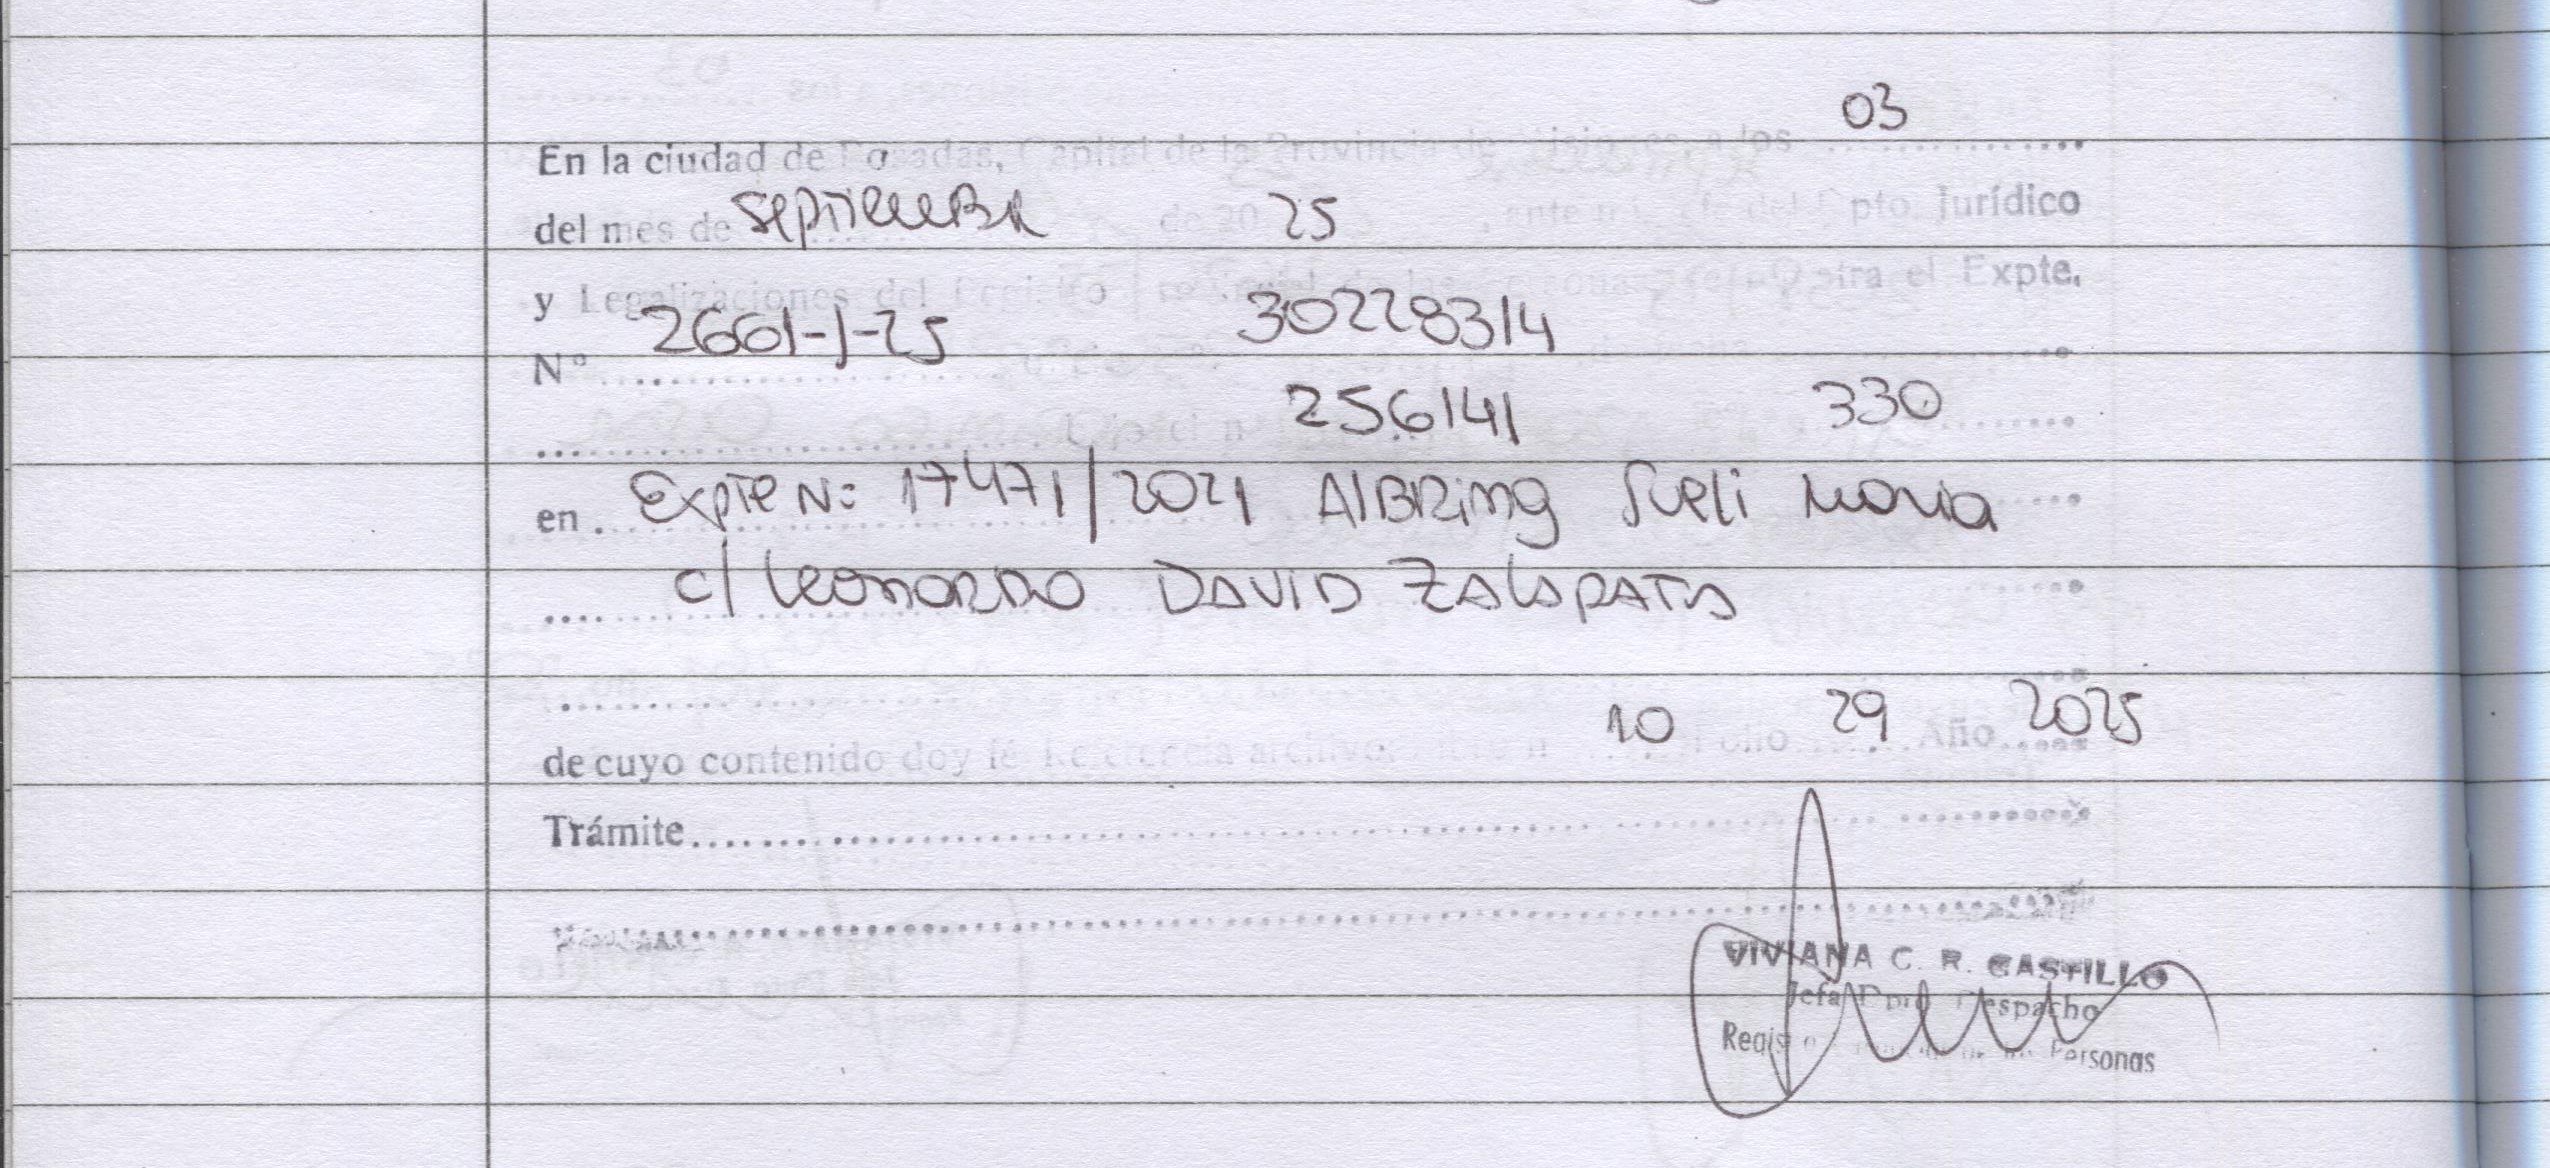 03
En la ciudad de Posadas, Capital de la Provincia de Misiones, a los
del mes de septiembre de 2025, ante mi, del Dpto. Jurídico
y Legalizaciones del Registro Provincial de las Personas, se registra el Expte.
Nº 2661-J-25 30228314
256141 330
en Expte Nº: 17471/2021 AlBRing Sueli Maria
c/ Leonardo DAVID ZALAPATA
10 29 2025
de cuyo contenido doy fé Referencia archivo: Folio Año
Trámite
VIVIANA C. R. CASTILLO
Jefa Dpto. Despacho
Registro Personas